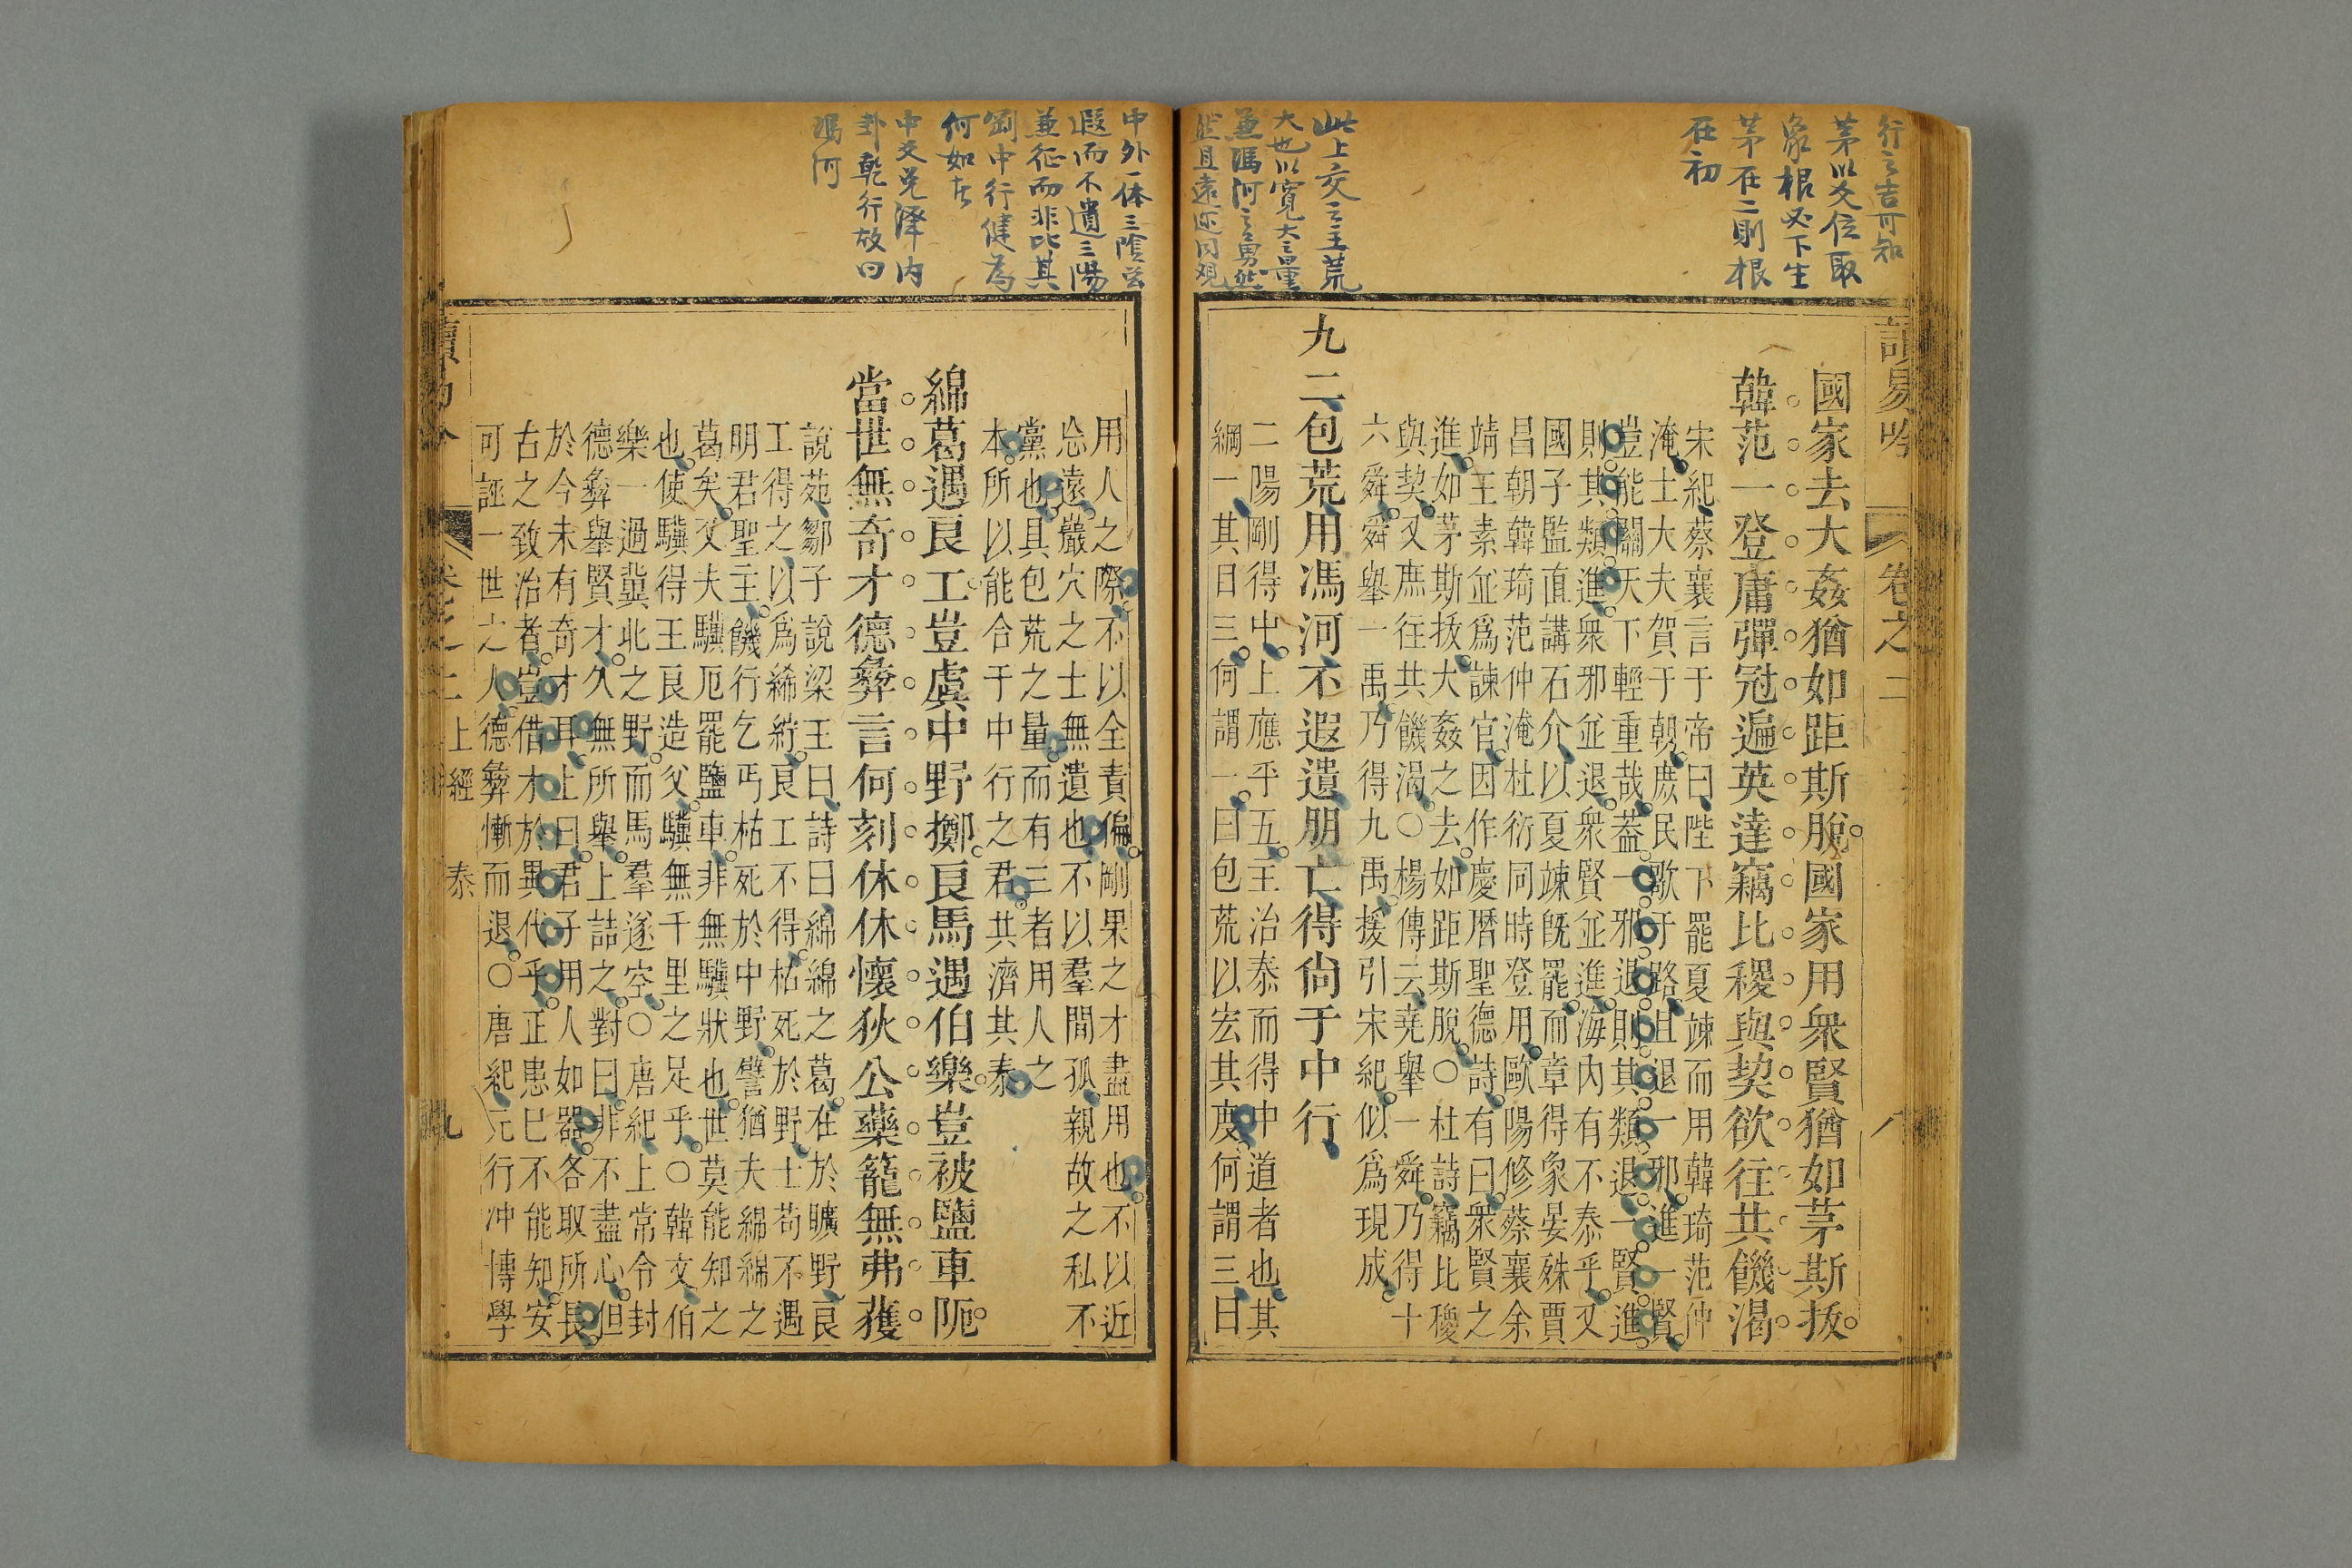 行之吉可知
茅以爻位取
象根必下生
茅在二則根
在初
此上交之主荒
大也以寬大之量
兼馮河之勇然
國家去大姦猶如距斯脫國家用衆賢猶如茅斯拔
韓范一登庸彈冠遍英達竊比稷與契欲往共饑渴
宋紀蔡襄言于帝曰陛下罷夏竦而用韓琦范仲
淹士大夫賀于朝庶民歌于路且退一邪進一賢
豈能關天下輕重哉葢一邪退則其類退一賢進
則其類進衆邪並退衆賢並進海內有不泰乎又
國子監直講石介以夏竦旣罷而章得象晏殊賈
昌朝韓琦范仲淹杜衍同時登用歐陽修蔡襄余
靖王素並爲諫官因作慶曆聖德詩有曰衆賢之
進如茅斯拔大姦之去如距斯脫○杜詩竊比稷
與契又庶往共饑渴○楊傳云堯舉一舜乃得十
六舜舜舉一禹乃得九禹援引宋紀似爲現成
九二包荒用馮河不遐遺朋亡得尙于中行
二陽剛得中上應乎五主治泰而得中道者也其
綱一其目三何謂一曰包荒以宏其度何謂三曰
讀易吟
卷之二
八
中外一体三陰並
遐而不遺三陽
兼征而非比其
剛中行健為
何如在
中爻兑澤内
卦乾行故曰
馮河
用人之際不以全責偏剛果之才盡用也不以近
忘遠巖穴之士無遺也不以羣間孤親故之私不
黨也具包荒之量而有三者用人之
本所以能合于中行之君共濟其泰
綿葛遇良工豈虞中野擲良馬遇伯樂豈被鹽車阨
當世無奇才德彝言何刻休休懷狄公藥籠無弗蒦
說苑鄒子說梁王曰詩曰綿綿之葛在於曠野良
工得之以爲絺綌良工不得枯死於野士苟不遇
明君聖主饑行乞丐枯死於中野譬猶夫綿綿之
葛矣又夫驥厄罷鹽車非無驥狀也世莫能知之
也使驥得王良造父驥無千里之足乎○韓文伯
樂一過冀北之野而馬羣遂空○唐紀上常令封
德彝舉賢才久無所舉上詰之對曰非不盡心但
於今未有奇才耳上曰君子用人如器各取所長
古之致治者豈借才於異代乎正患已不能知安
可誣一世之人德彝慚而退○唐紀元行冲博學
上經
泰
九